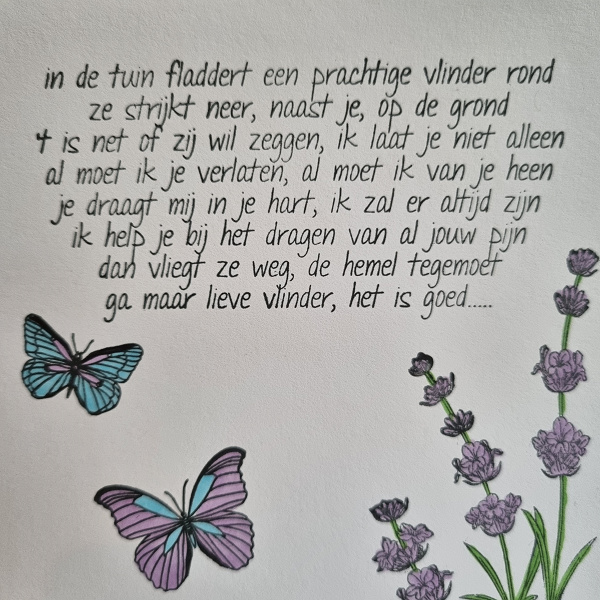 in de tuin fladdert een prachtige vlinder rond
ze strijkt neer, naast je, op de grond
't is net of zij wil zeggen, ik laat je niet alleen
al moet ik je verlaten, al moet ik van je heen
je draagt mij in je hart, ik zal er altijd zijn
ik help je bij het dragen van al jouw pijn
dan vliegt ze weg, de hemel tegemoet
ga maar lieve vlinder, het is goed.....